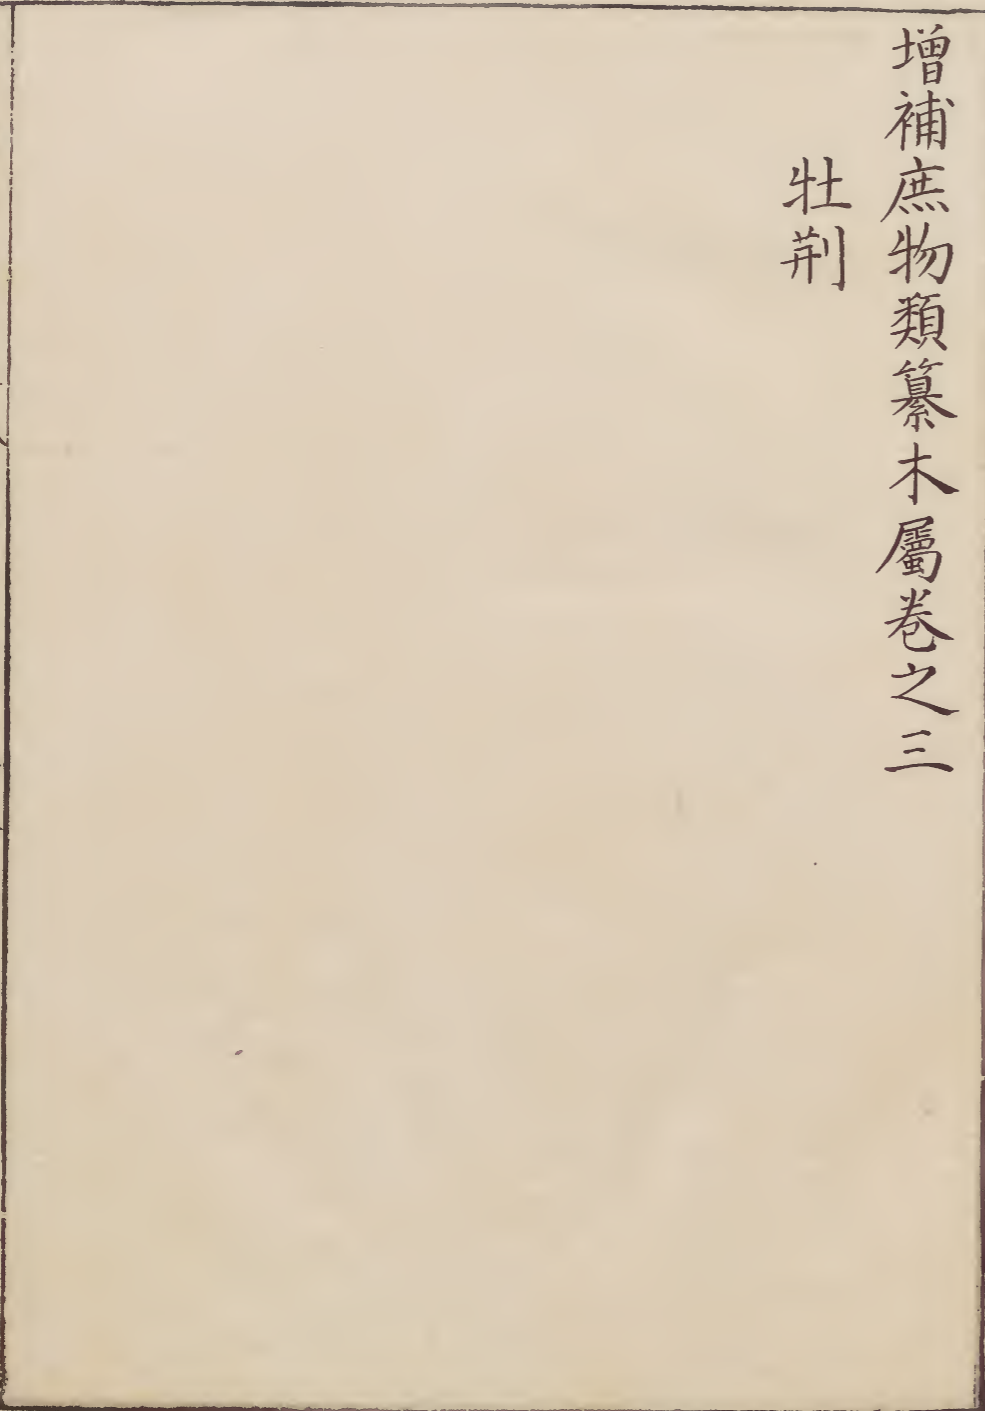 增補庶物類纂木屬卷之三
牡荆